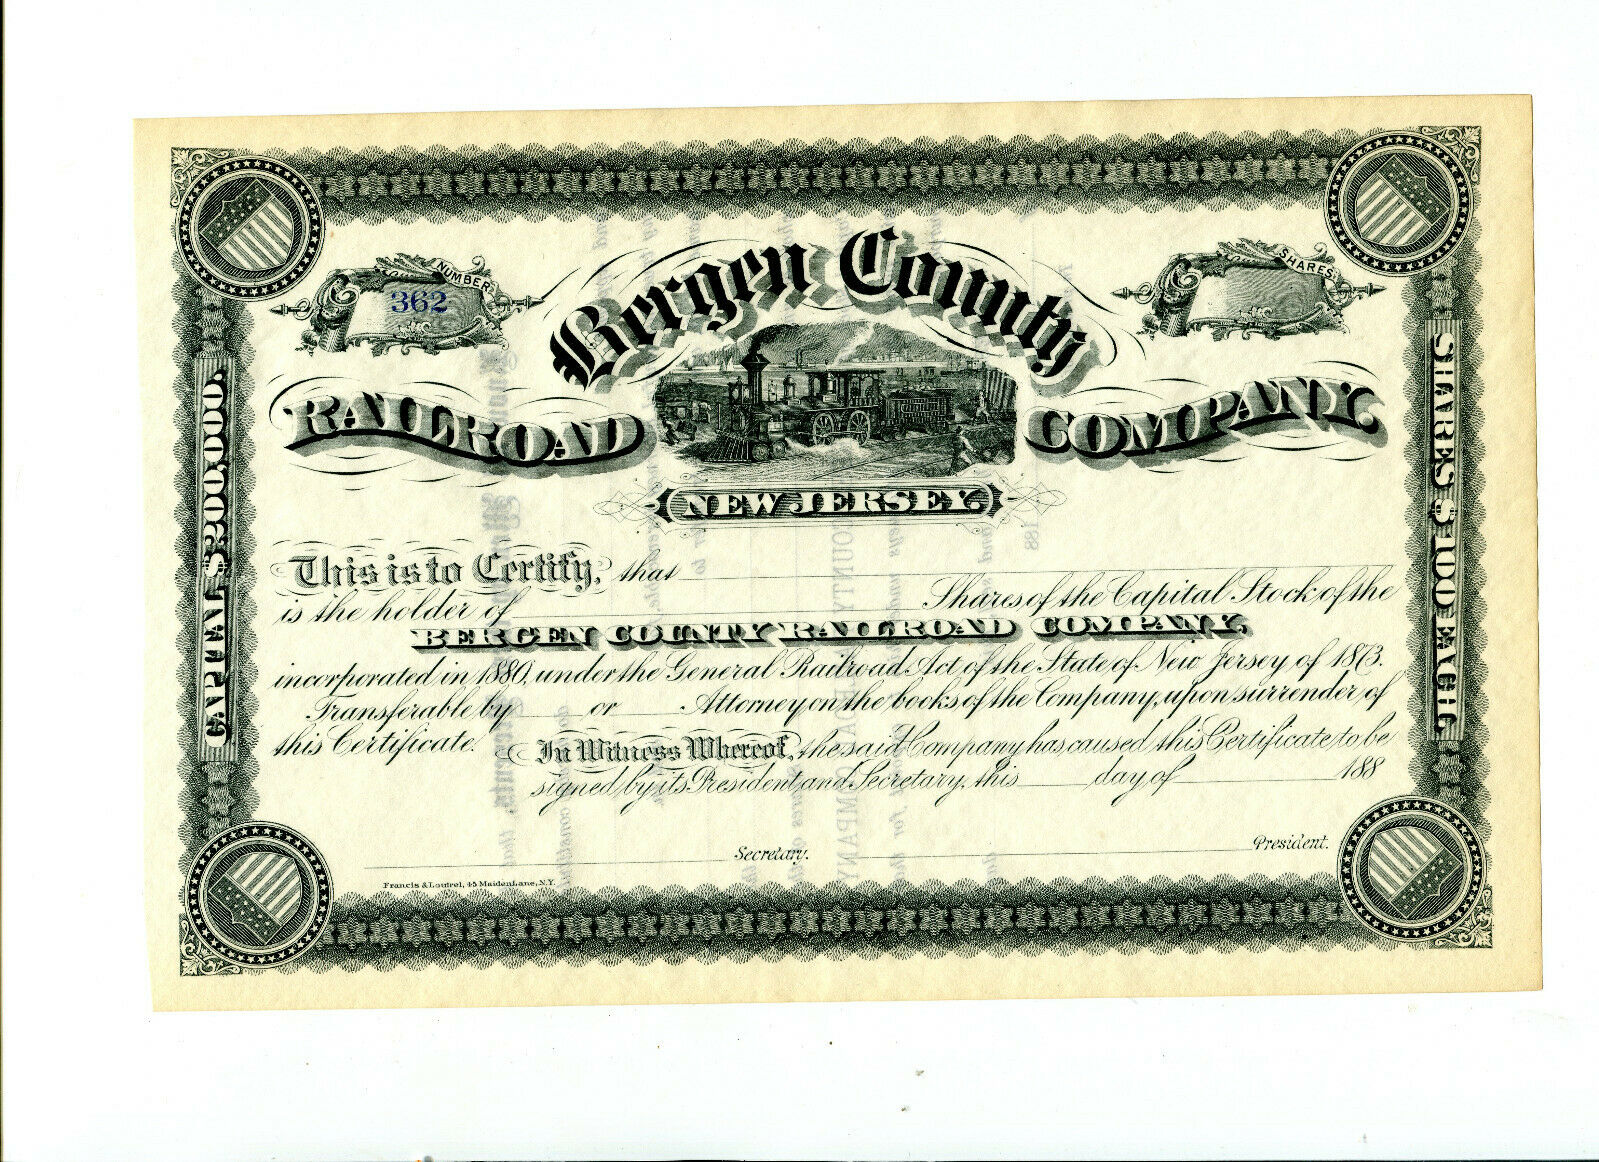 NUMBER
362
SHARES
Bergen County
RAILROAD COMPANY.
NEW JERSEY.
CAPITAL $200,000.
SHARES $100 EACH.
This is to Certify, that
is the holder of Shares, of the Capital Stock of the
BERGEN COUNTY RAILROAD COMPANY,
incorporated in 1880, under the General Railroad Act of the State of New Jersey of 1873.
Transferable by or Attorney on the books of the Company, upon surrender of
this Certificate. In Witness Whereof, the said Company has caused this Certificate to be
signed by its President and Secretary, this day of 188
Secretary. President.
Francis & Loutrel, 45 Maiden Lane, N.Y.